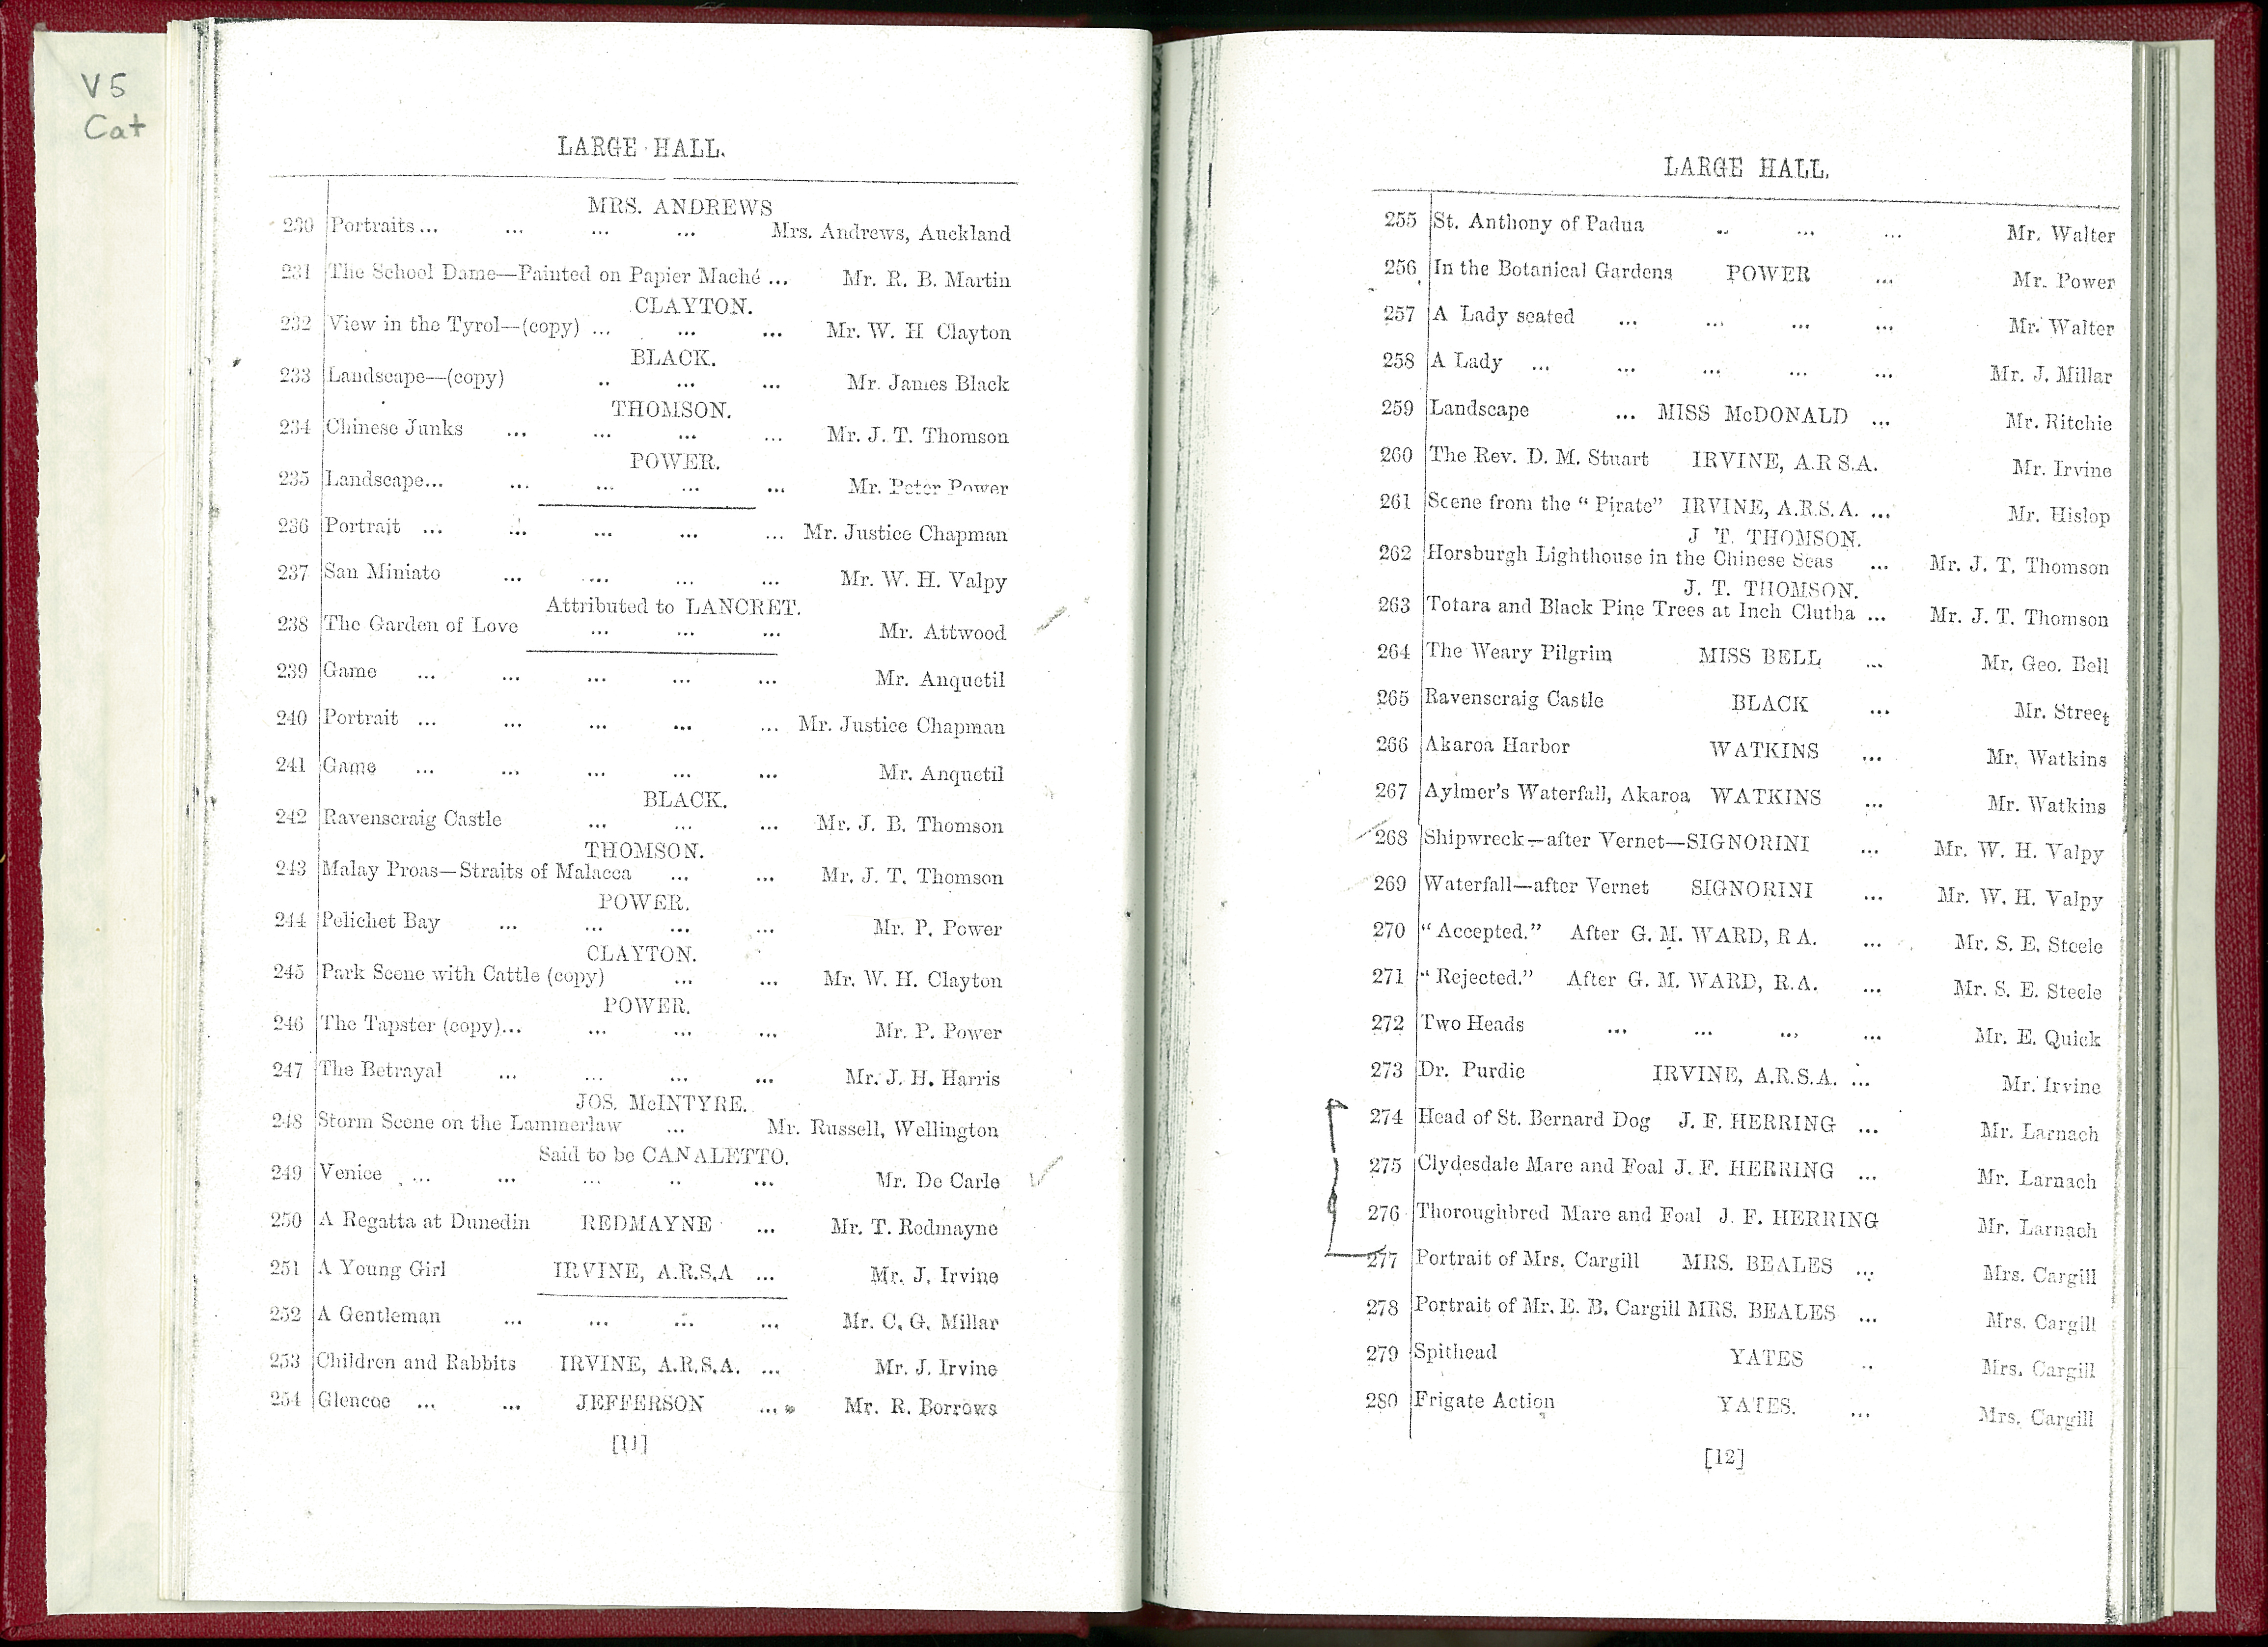 V5
Cat
LARGE HALL.
MRS. ANDREWS
230 Portraits... ... ... ... Mrs. Andrews, Auckland
231 The School Dame—Painted on Papier Maché ... Mr. R. B. Martin
CLAYTON.
232 View in the Tyrol—(copy) ... ... ... Mr. W. H Clayton
BLACK.
233 Landscape—(copy) .. ... ... Mr. James Black
THOMSON.
234 Chinese Junks ... ... ... ... Mr. J. T. Thomson
POWER.
235 Landscape... ... ... ... ... Mr. Peter Power
236 Portrait ... ... ... ... ... Mr. Justice Chapman
237 San Miniato ... ... ... ... Mr. W. H. Valpy
Attributed to LANCRET.
238 The Garden of Love ... ... ... Mr. Attwood
239 Game ... ... ... ... ... Mr. Anquetil
240 Portrait ... ... ... ... ... Mr. Justice Chapman
241 Game ... ... ... ... ... Mr. Anquetil
BLACK.
242 Ravenscraig Castle ... ... ... Mr. J. B. Thomson
THOMSON.
243 Malay Proas—Straits of Malacca ... ... Mr. J. T. Thomson
POWER.
244 Pelichet Bay ... ... ... ... Mr. P. Power
CLAYTON.
245 Park Scene with Cattle (copy) ... ... Mr. W. H. Clayton
POWER.
246 The Tapster (copy)... ... ... ... Mr. P. Power
247 The Betrayal ... ... ... ... Mr. J. H. Harris
JOS. McINTYRE.
248 Storm Scene on the Lammerlaw ... Mr. Russell, Wellington
Said to be CANALETTO.
249 Venice ... ... ... .. ... Mr. De Carle
250 A Regatta at Dunedin REDMAYNE ... Mr. T. Redmayne
251 A Young Girl IRVINE, A.R.S.A ... Mr. J. Irvine
252 A Gentleman ... ... ... ... Mr. C. G. Millar
253 Children and Rabbits IRVINE, A.R.S.A. ... Mr. J. Irvine
254 Glencoe ... ... JEFFERSON ... Mr. R. Borrows
[11]
LARGE HALL.
255 St. Anthony of Padua .. ... ... Mr. Walter
256 In the Botanical Gardens POWER ... Mr. Power
257 A Lady seated ... ... ... ... Mr. Walter
258 A Lady ... ... ... ... ... Mr. J. Millar
259 Landscape ... MISS McDONALD ... Mr. Ritchie
260 The Rev. D. M. Stuart IRVINE, A.R S.A. Mr. Irvine
261 Scene from the "Pirate" IRVINE, A.R.S.A. ... Mr. Hislop
J T. THOMSON.
262 Horsburgh Lighthouse in the Chinese Seas ... Mr. J. T. Thomson
J. T. THOMSON.
263 Totara and Black Pine Trees at Inch Clutha ... Mr. J. T. Thomson
264 The Weary Pilgrim MISS BELL ... Mr. Geo. Bell
265 Ravenscraig Castle BLACK ... Mr. Street
266 Akaroa Harbor WATKINS ... Mr. Watkins
267 Aylmer's Waterfall, Akaroa WATKINS ... Mr. Watkins
268 Shipwreck—after Vernet—SIGNORINI ... Mr. W. H. Valpy
269 Waterfall—after Vernet SIGNORINI ... Mr. W. H. Valpy
270 "Accepted." After G. M. WARD, R A. ... Mr. S. E. Steele
271 "Rejected." After G. M. WARD, R.A. ... Mr. S. E. Steele
272 Two Heads ... ... ... ... Mr. E. Quick
273 Dr. Purdie IRVINE, A.R.S.A. ... Mr. Irvine
274 Head of St. Bernard Dog J. F. HERRING ... Mr. Larnach
275 Clydesdale Mare and Foal J. F. HERRING ... Mr. Larnach
276 Thoroughbred Mare and Foal J. F. HERRING Mr. Larnach
277 Portrait of Mrs. Cargill MRS. BEALES ... Mrs. Cargill
278 Portrait of Mr. E. B. Cargill MRS. BEALES ... Mrs. Cargill
279 Spithead YATES .. Mrs. Cargill
280 Frigate Action YATES. ... Mrs. Cargill
[12]